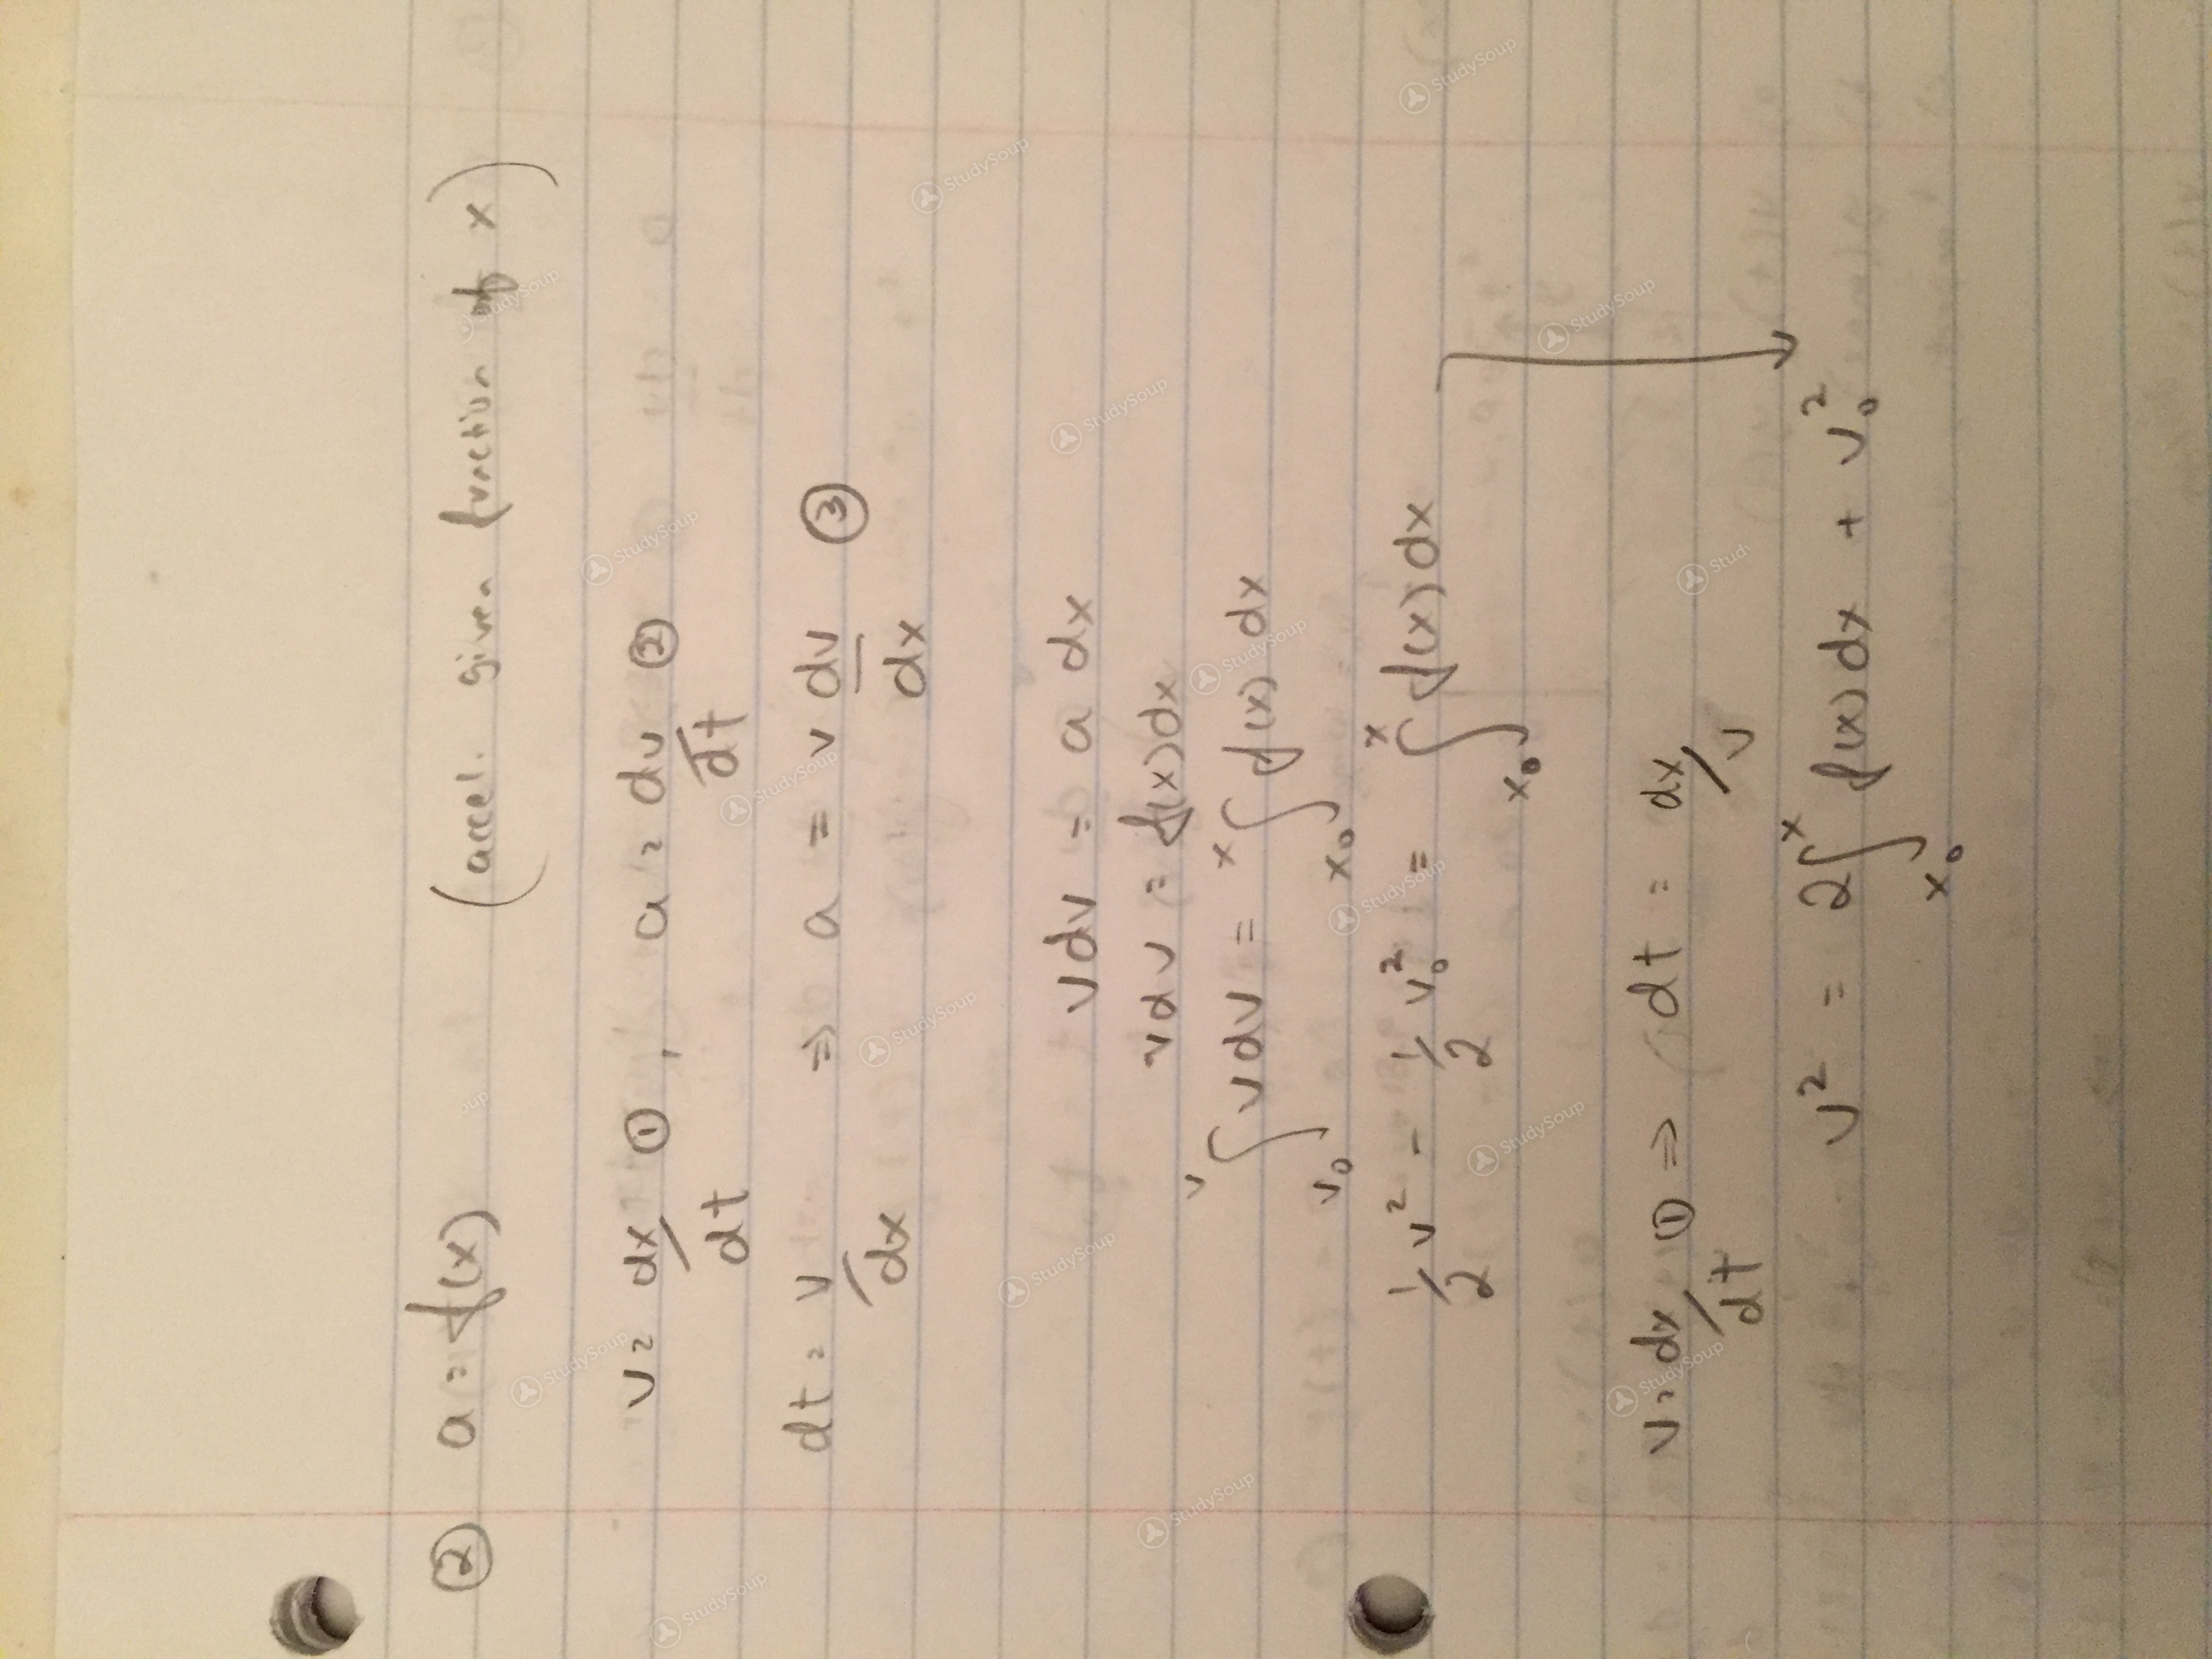 ② a = f(x) (accel. given function of x)
v = dx/dt ①, a = dv/dt ②
dt = v/dx ⇒ a = v dv/dx ③
vdv = a dx
vdv = f(x)dx
∫_{v₀}^{v} vdv = ∫_{x₀}^{x} f(x) dx
1/2 v² - 1/2 v₀² = ∫_{x₀}^{x} f(x) dx
v = dx/dt ① ⇒ dt = dx/v
v² = 2∫_{x₀}^{x} f(x) dx + v₀²
StudySoup